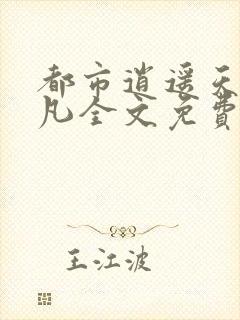 都市逍遥天
凡全文免費
王江波